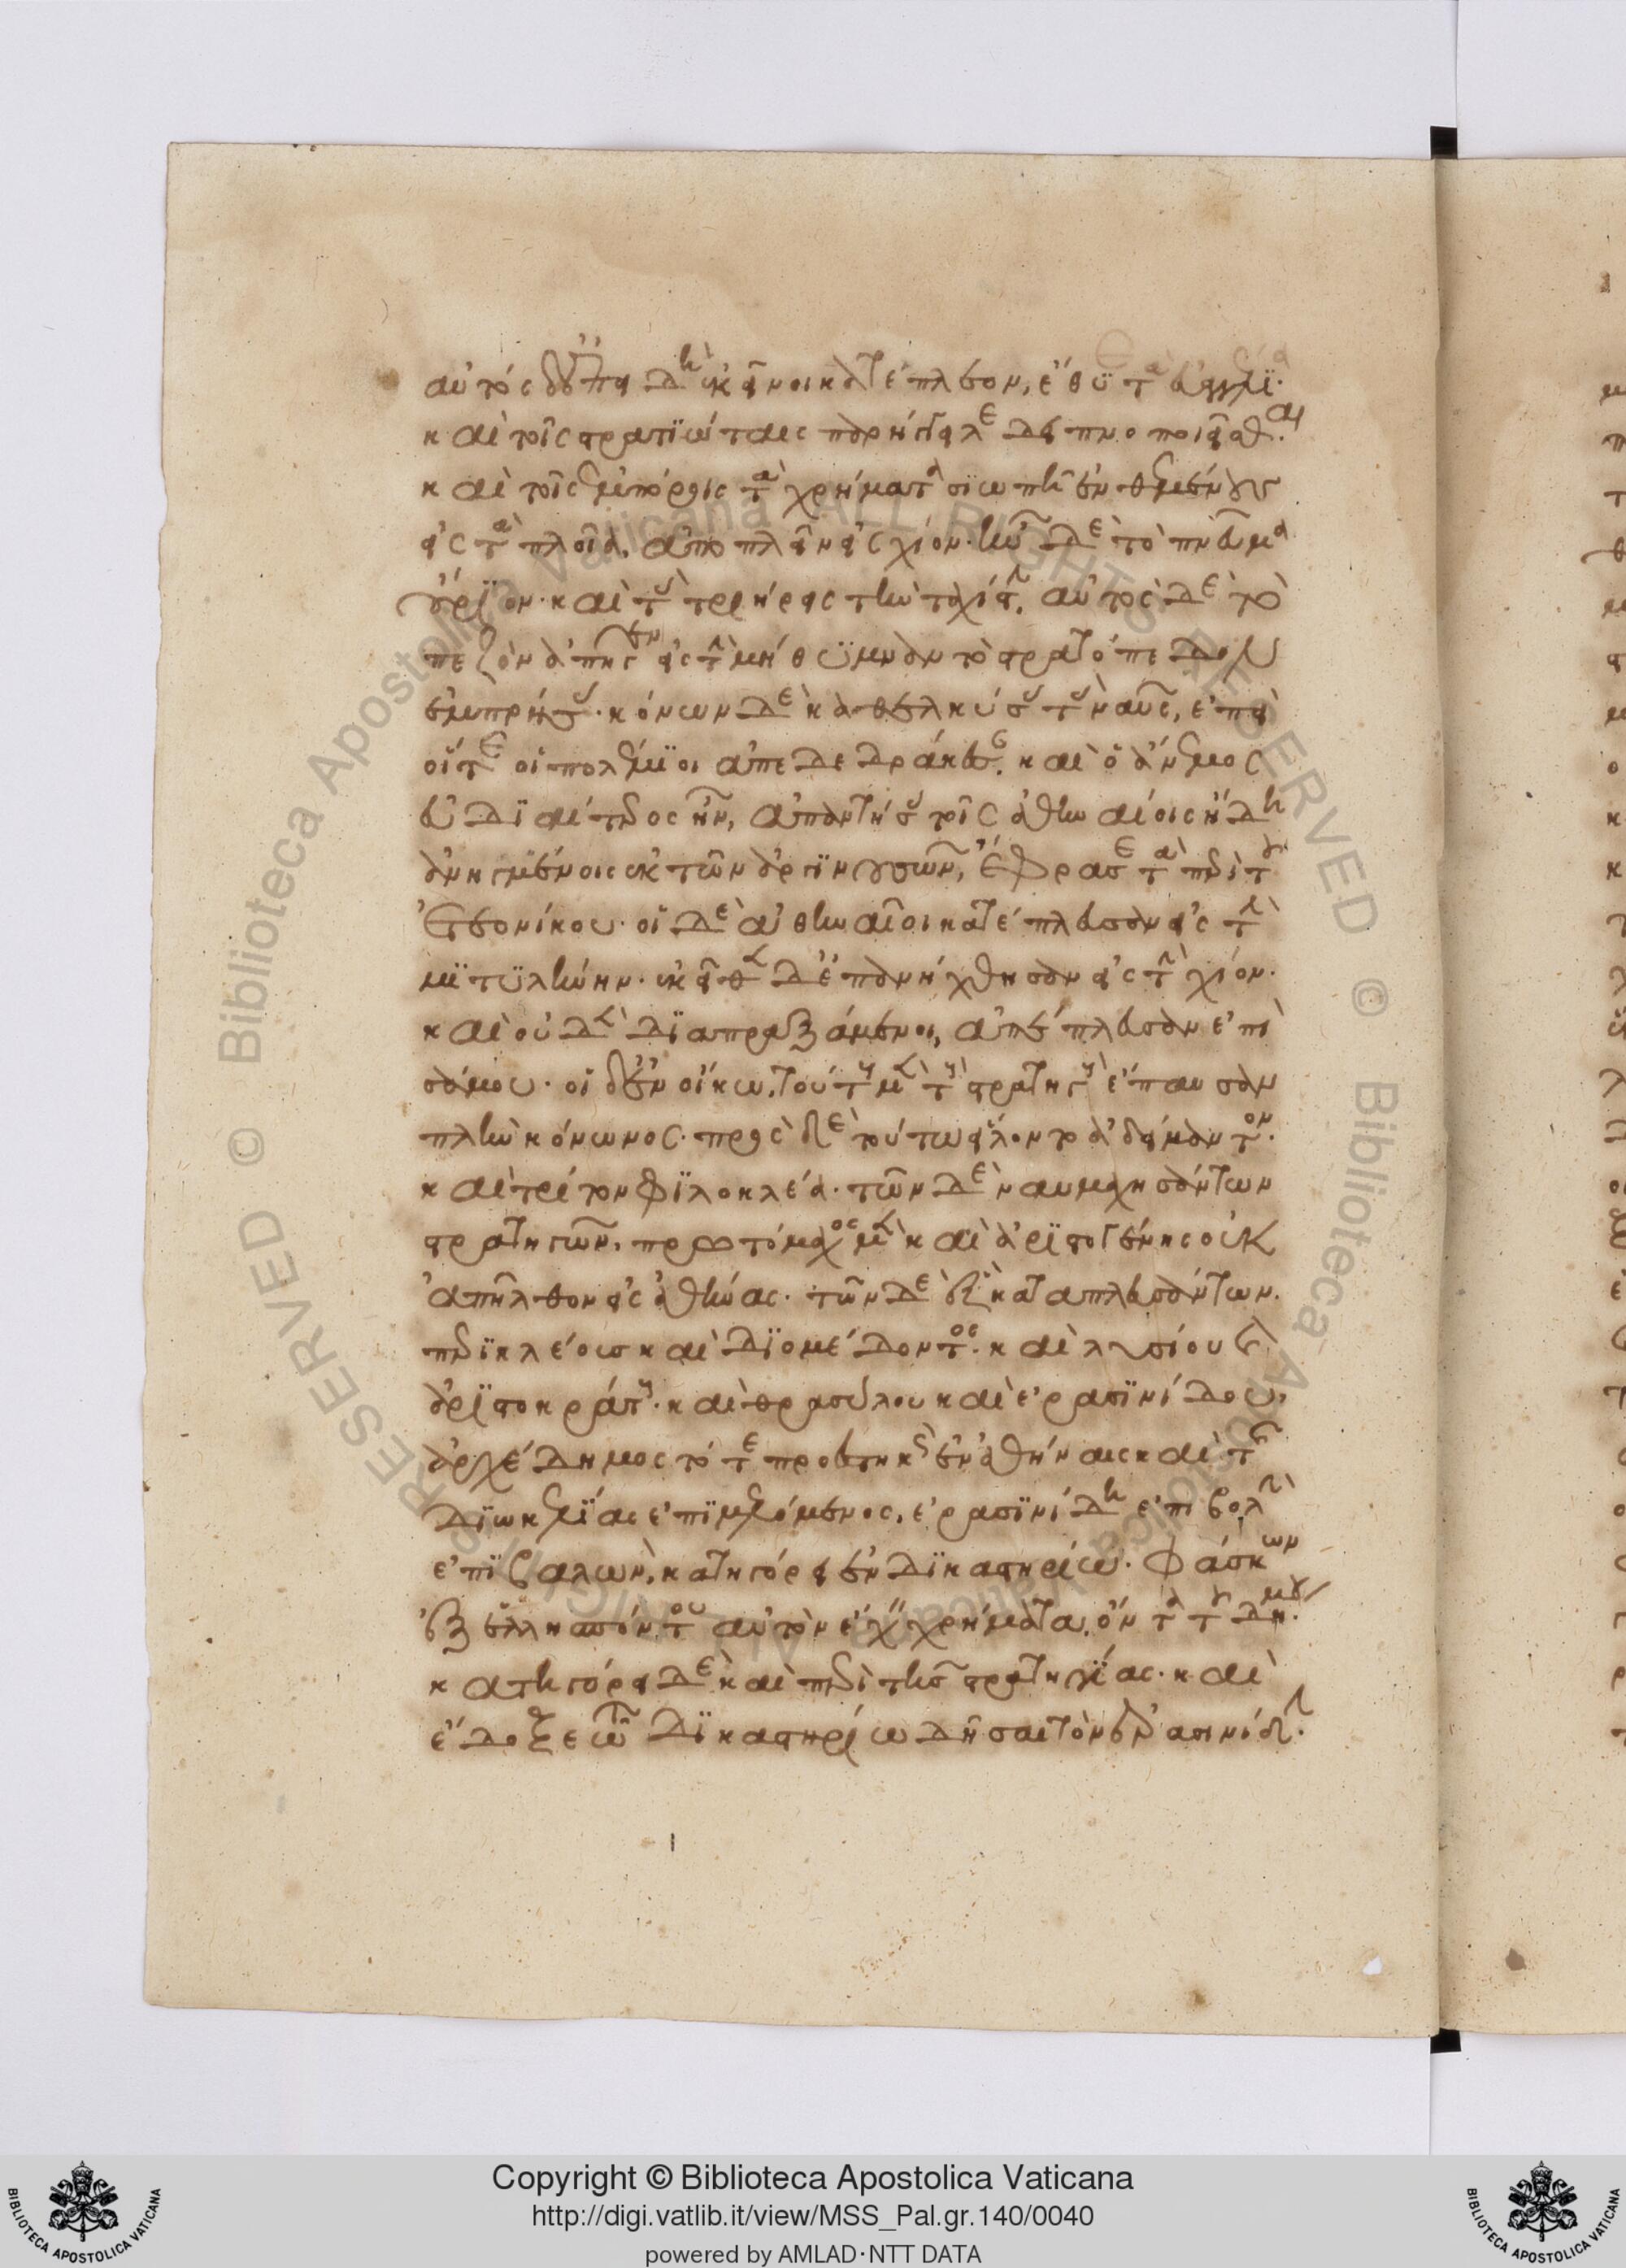 αὐτὸς δ' ἐπειδὴ ἐκεῖνοι κατέπλεον, ἔθυε τὰ εὐαγγέλια·
καὶ τοῖς στρατιώταις παρήγγειλε δειπνοποιεῖσθαι·
καὶ τοῖς ἐμπόροις τὰ χρήματα σιωπῇ ἐνθεμένους
εἰς τὰ πλοῖα, ἀποπλεῖν εἰς χίον· ἦν δὲ τὸ πνεῦμα
οὔριον· καὶ τὰς τριήρεις τὴν ταχίστην. αὐτὸς δὲ τὸ
πεζὸν ἀπῆγεν εἰς τὴν μήθυμναν τὸ στρατόπεδον
ἐμπρήσας· κόνων δὲ καθελκύσας τὰς ναῦς, ἐπεὶ
οἵ τε οἱ πολέμιοι ἀπεδεδράκεσαν. καὶ ὁ ἄνεμος
εὐδιαίτερος ἦν, ἀπαντήσας τοῖς ἀθηναίοις ἤδη
ἀνηγμένοις ἐκ τῶν ἀργινουσῶν, ἔφρασε τὰ περὶ τοῦ
ἐτεονίκου· οἱ δὲ ἀθηναῖοι κατέπλευσαν εἰς τὴν
μιτυλήνην· ἐκεῖθεν δ' ἐπανήχθησαν εἰς τὴν χίον·
καὶ οὐδὲν διαπραξάμενοι, ἀπέπλευσαν ἐπὶ
σάμου· οἱ δ' ἐν οἴκῳ τούτους μὲν τοὺς στρατηγοὺς ἔπαυσαν
πλὴν κόνωνος· πρὸς δὲ τούτῳ εἵλοντο ἀδείμαντον·
καὶ τρίτον φιλοκλέα· τῶν δὲ ναυμαχησάντων
στρατηγῶν, πρωτόμαχος μὲν καὶ ἀριστογένης οὐκ
ἀπῆλθον εἰς ἀθήνας· τῶν δὲ ἓξ καταπλευσάντων.
περικλέους καὶ διομέδοντος· καὶ λυσίου καὶ
ἀριστοκράτους· καὶ θρασύλου καὶ ἐρασινίδου,
ἀρχέδημος τότε προεστηκὼς ἐν ἀθήναις καὶ τῆς
διωκελίας ἐπιμελόμενος, ἐρασινίδη ἐπιβολὴν
ἐπιβαλὼν, κατηγόρει ἐν δικαστηρίῳ· φάσκων
ἐξ ἑλλησπόντου αὐτὸν ἔχειν χρήματα, ὄντα τοῦ δήμου·
κατηγόρει δὲ καὶ περὶ τῆς στρατηγίας· καὶ
ἔδοξε τῷ δικαστηρίῳ δῆσαι τὸν ἐρασινίδην·
Copyright © Biblioteca Apostolica Vaticana
http://digi.vatlib.it/view/MSS_Pal.gr.140/0040
powered by AMLAD·NTT DATA